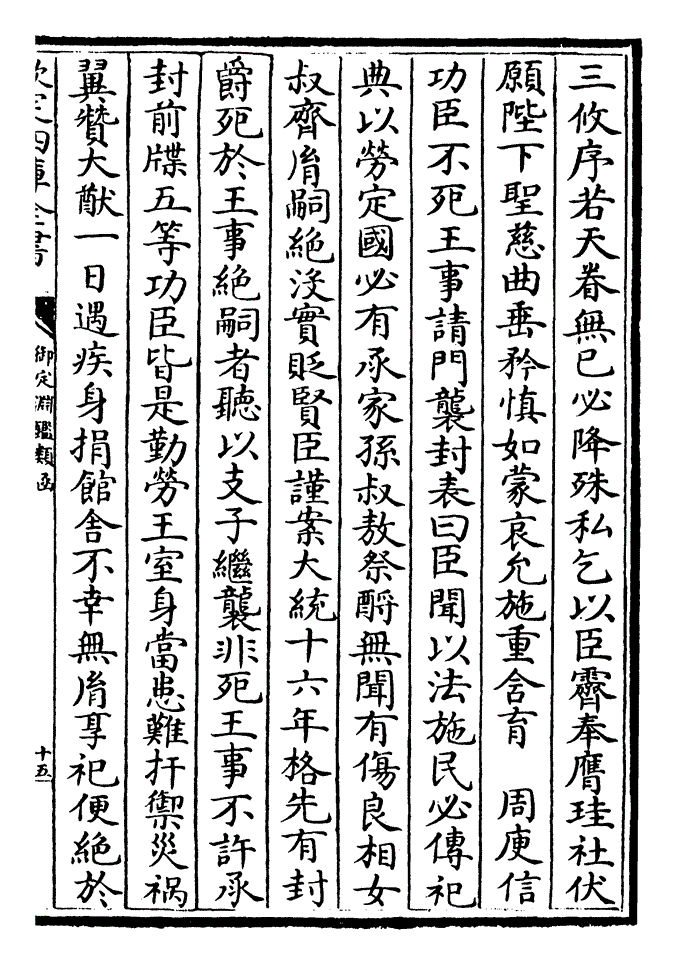 三攸序若天眷無已必降殊私乞以臣霽奉膺珪社伏
願陛下聖慈曲垂矜慎如蒙哀允施重含育　周庾信
功臣不死王事請門襲封表曰臣聞以法施民必傳祀
典以勞定國必有承家孫叔敖祭酹無聞有傷良相女
叔齊胤嗣絶沒實貶賢臣謹案大統十六年格先有封
爵死於王事絶嗣者聽以支子繼襲非死王事不許承
封前牒五等功臣皆是勤勞王室身當患難扞禦災禍
翼贊大猷一日遇疾身捐館舎不幸無胤享祀便絶於
欽定四庫全書
御定淵鑑類函
十五